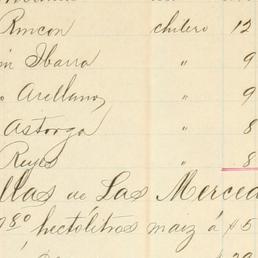 Rincon chilero 12
Ibarra " 9
o Arellano, " 9
Astorga " 8
Reyes " 8
llas de Las Merced
980 hectolitros maiz á $5